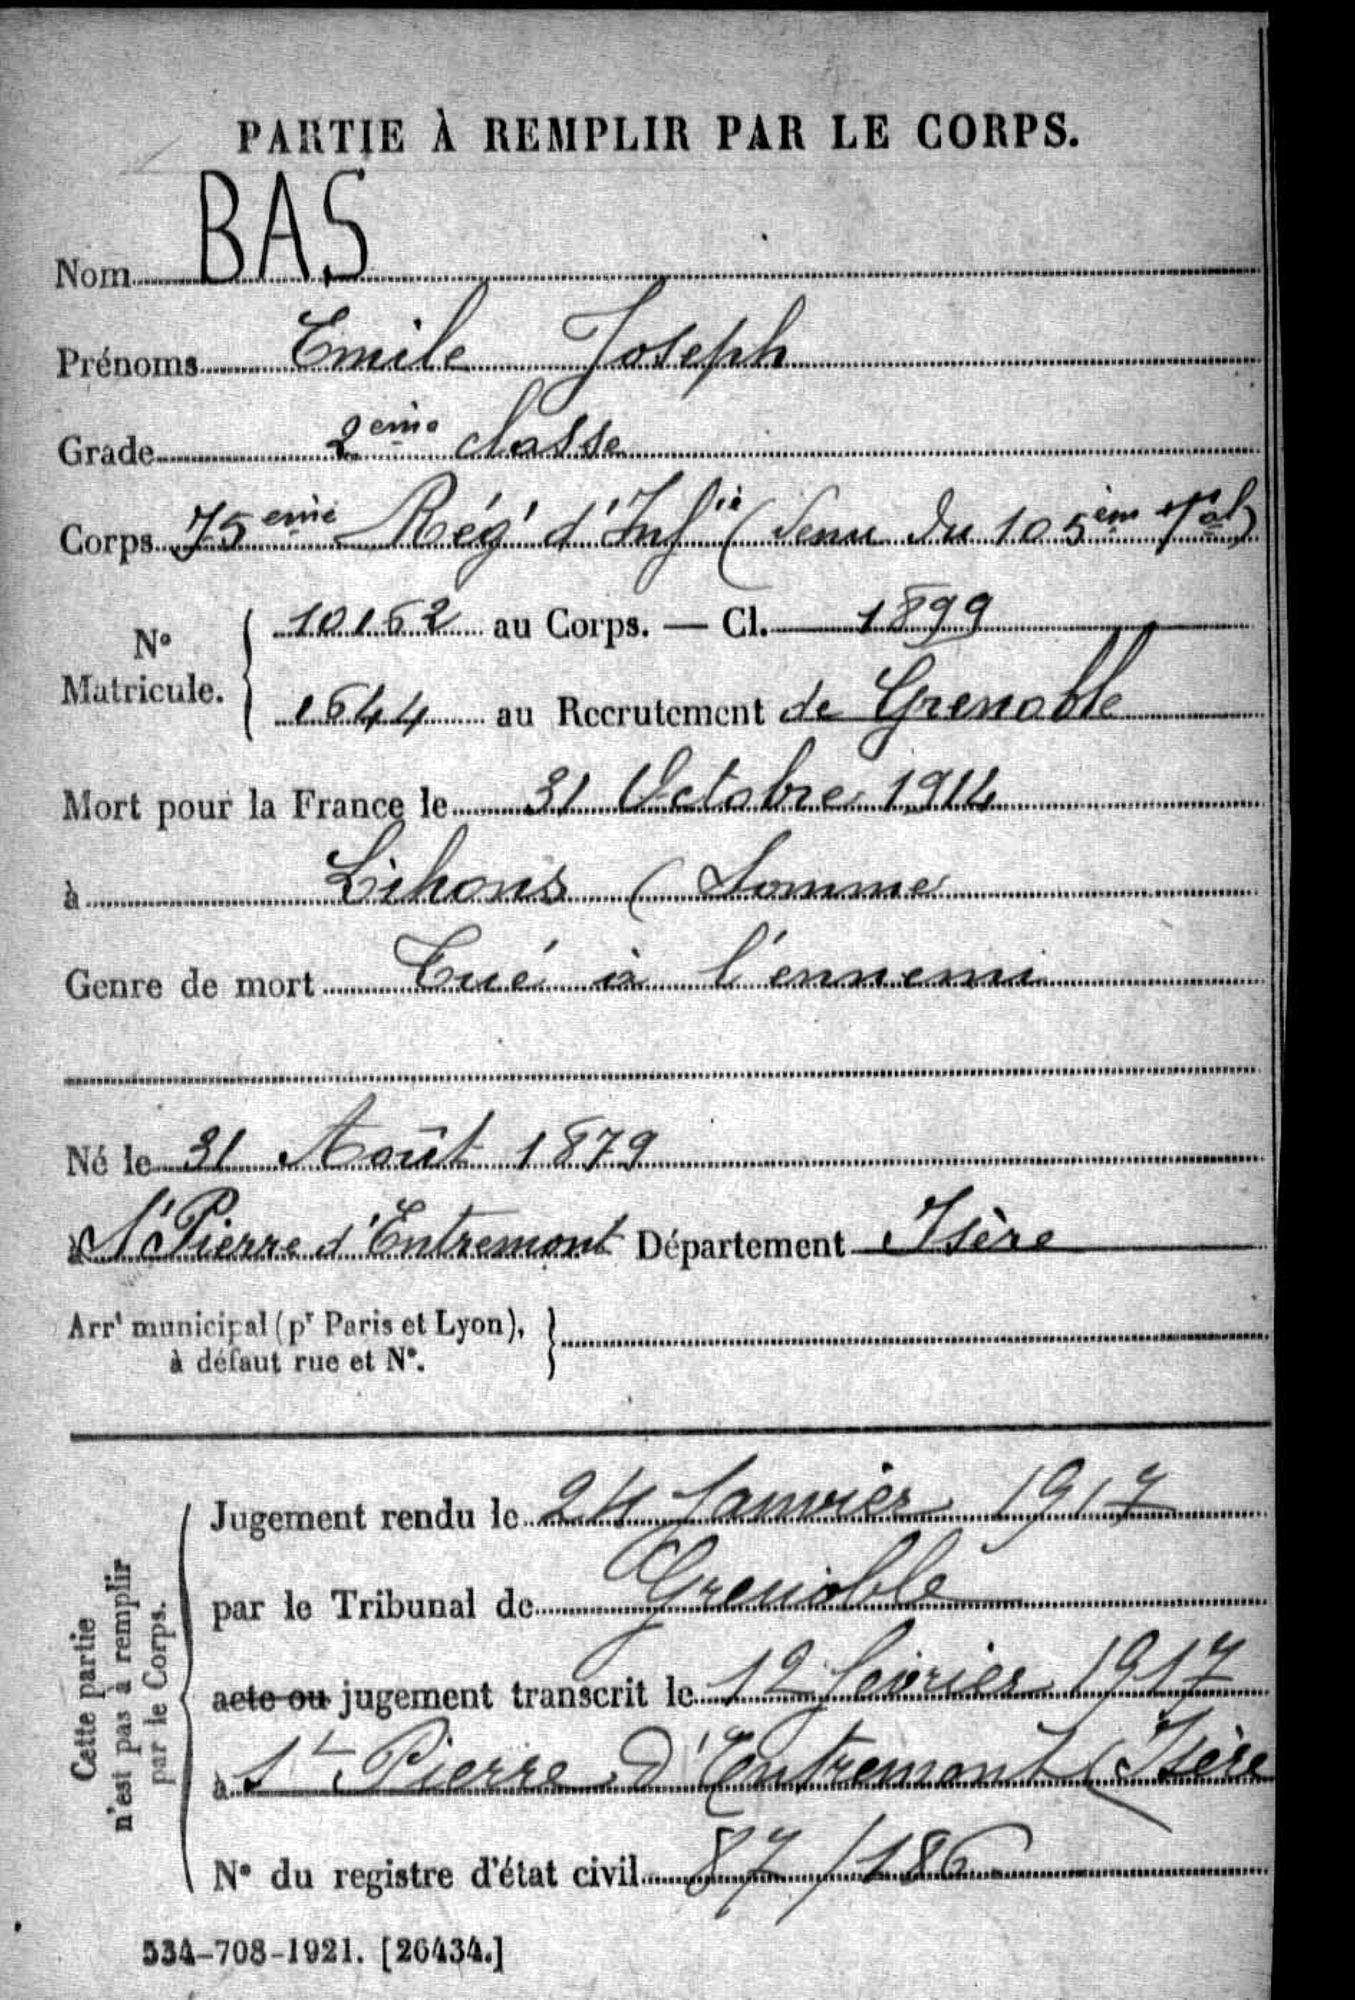 PARTIE À REMPLIR PAR LE CORPS.
Nom BAS
Prénoms Emile Joseph
Grade 2ème classe
Corps 75ème Rég' d'Infie (Venu du 105ème Tal)
N° Matricule. 10162 au Corps. — Cl. 1899
1644 au Recrutement de Grenoble
Mort pour la France le 31 Octobre 1914
à Lihons (Somme
Genre de mort Tué à l'ennemi
Né le 31 Août 1879
à St Pierre d'Entremont Département Isère
Arrt municipal (pr Paris et Lyon),
à défaut rue et N°.
Cette partie
n'est pas à remplir
par le Corps.
Jugement rendu le 24 Janvier 1917
par le Tribunal de Grenoble
acte ou jugement transcrit le 12 février 1917
à St Pierre d'Entremont (Isère
N° du registre d'état civil 87/186
534-708-1921. [26434.]